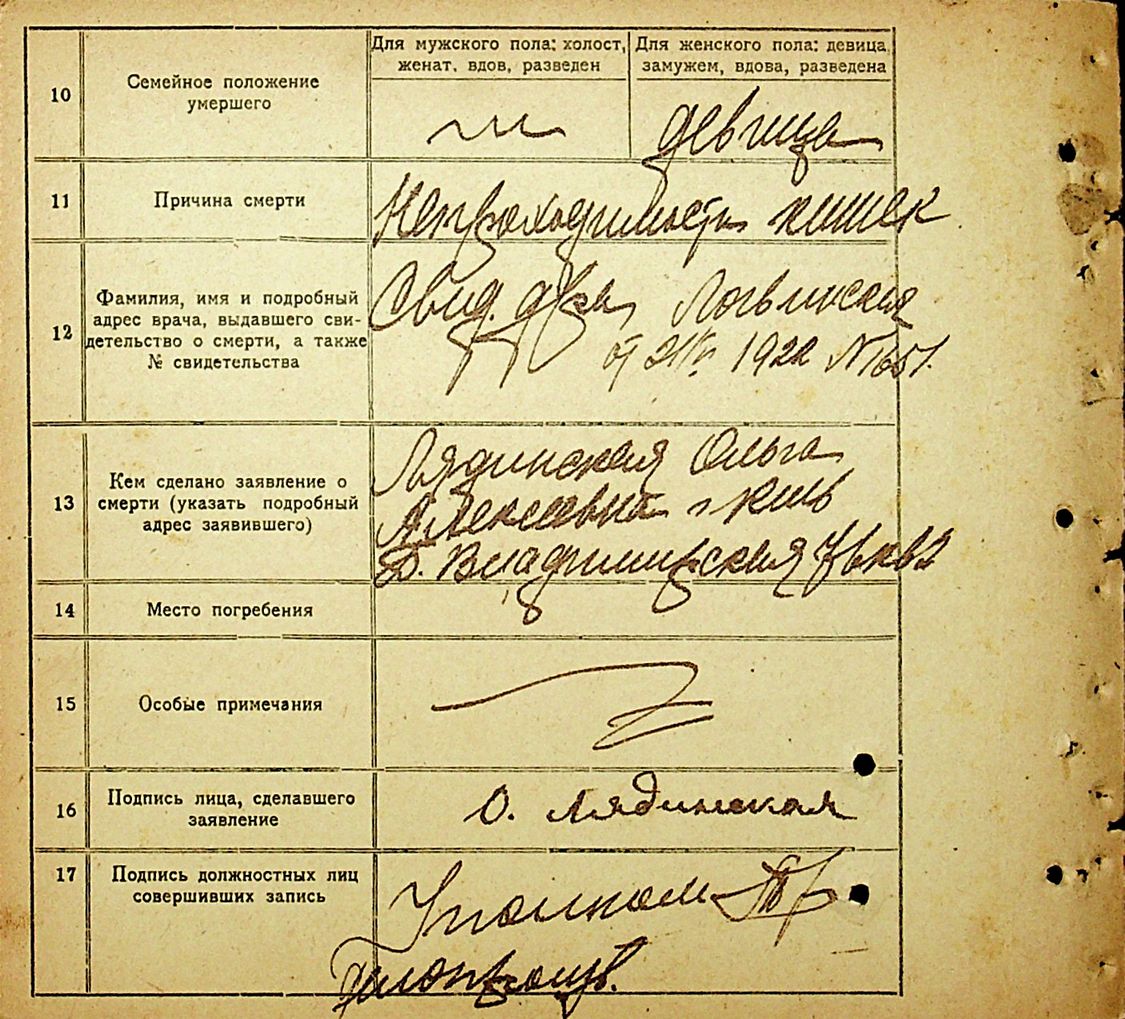 10
Семейное положение
умершего
Для мужского пола: холост,
женат, вдов, разведен
Для женского пола: девица,
замужем, вдова, разведена
девица
11
Причина смерти
Непроходимость кишек
12
Фамилия, имя и подробный
адрес врача, выдавшего сви-
детельство о смерти, а также
№ свидетельства
Свид. врача Логвинская
от 1922 N 1651.
13
Кем сделано заявление о
смерти (указать подробный
адрес заявившего)
Лядинская Ольга
Алексеевна
Б. Владимирская 76 кв 2
14
Место погребения
15
Особые примечания
16
Подпись лица, сделавшего
заявление
О. Лядинская
17
Подпись должностных лиц
совершивших запись
Уполном
Делопроизв.